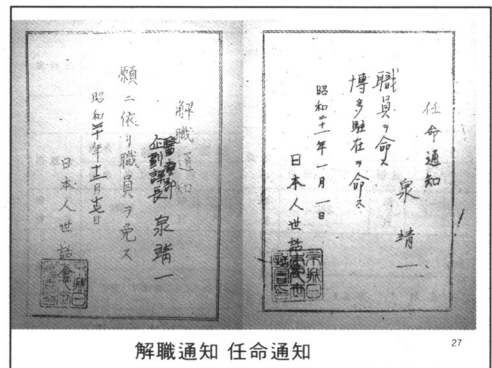 任命通知
泉靖一
職員ヲ命ス
博多駐在ヲ命ス
昭和二十一年一月一日
日本人世話會
解職通知
企劃課長 泉靖一
願ニ依リ職員ヲ免ス
昭和二十年
日本人世話會
解職通知 任命通知
27